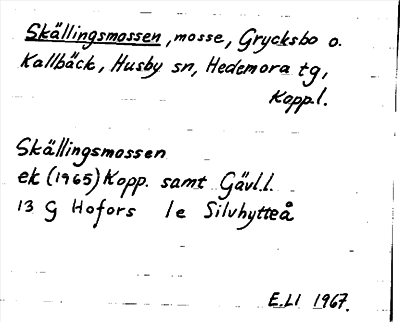 Skällingsmossen, mosse, Grycksbo o.
Kallbäck, Husby sn, Hedemora tg,
Kopp.l.
Skällingsmossen
ek (1965) Kopp. samt Gävl.l.
13 G Hofors 1e Silvhytteå
E.LI 1967.